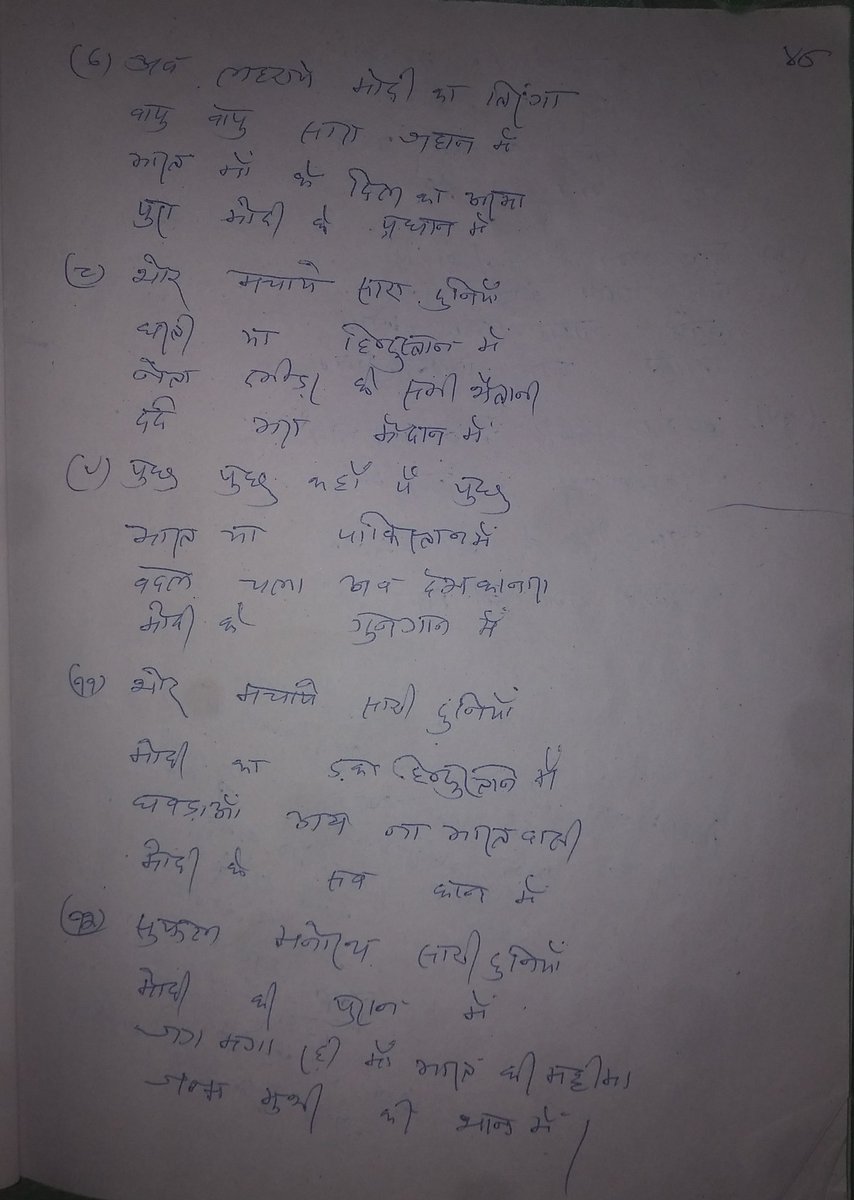 ४८
अब लहराये मोदी का तिरंगा
वायु वायु सारा जहान में
भारत माँ के दिल का अरमा
पुरा मोदी के प्रधान में
शोर मचाये सारा दुनियाँ
धरती का हिन्दुस्तान में
के सभी शैतानी
दर्द भरा मैदान में
पुछु पुछु कहाँ पें पुछु
भारत या पाकिस्तान में
बदल चला अब
मोदी के गुनगान में
(११) शोर मचाये सारी दुनियाँ
मोदी का डंका हिन्दुस्तान में
घबड़ाओं अब ना भारतवासी
मोदी के सब काम में
सुफल मनोरथ सारी दुनियाँ
मोदी की पुरान में
जग मगा रही माँ भारत की महीमा
जन्म की शान में